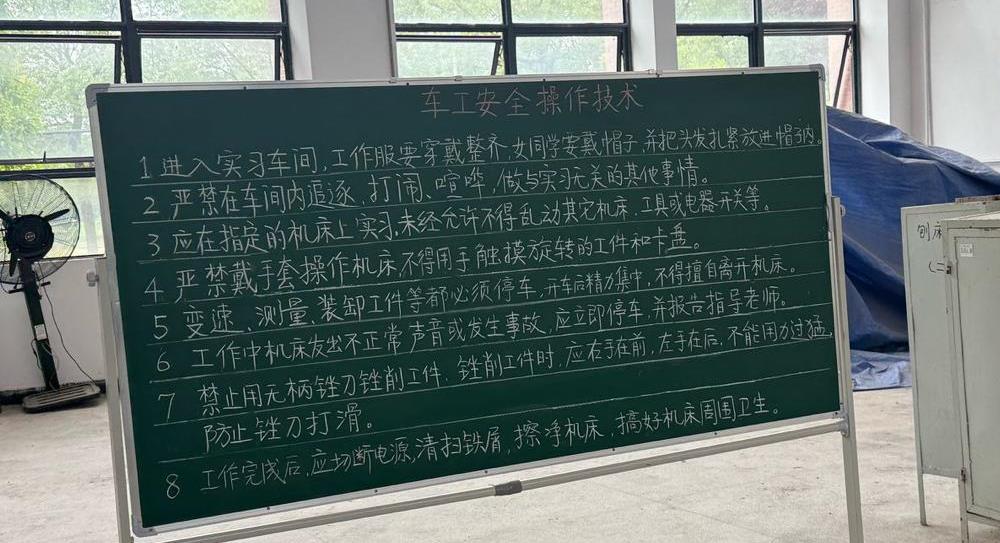 车工安全操作技术
1 进入实习车间,工作服要穿戴整齐,女同学要戴帽子,并把头发扎紧放进帽子内。
2 严禁在车间内追逐、打闹、喧哗,做与实习无关的其他事情。
3 应在指定的机床上实习,未经允许不得乱动其它机床、工具或电器开关等。
4 严禁戴手套操作机床,不得用手触摸旋转的工件和卡盘。
5 变速、测量、装卸工件等都必须停车,开车后精力集中,不得擅自离开机床。
6 工作中机床发出不正常声音或发生事故,应立即停车,并报告指导老师。
7 禁止用无柄锉刀锉削工件、锉削工件时,应右手在前,左手在后,不能用力过猛,
防止锉刀打滑。
8 工作完成后,应切断电源,清扫铁屑,擦净机床,搞好机床周围卫生。
刨床
(二